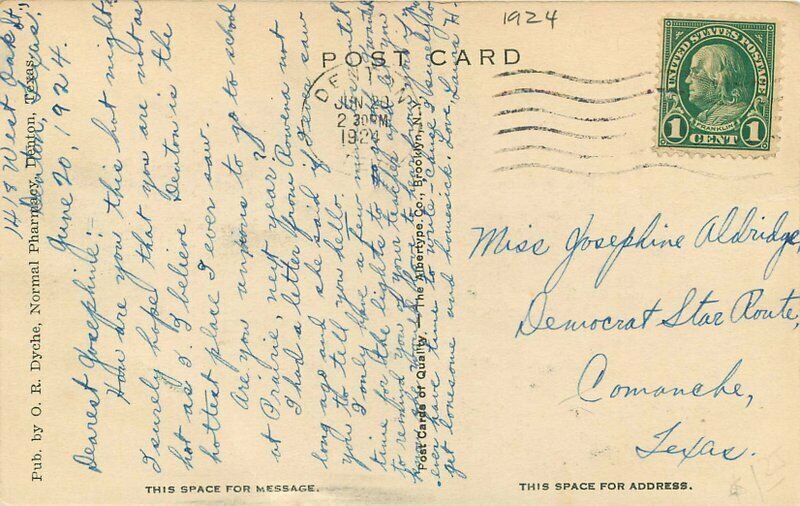 1924
POST CARD
DENTON
JUN 20
2 30PM
1924
UNITED STATES POSTAGE
FRANKLIN
1 CENT 1
1418 West Oak St.,
Denton, Texas,
June 20, 1924.
Dearest Josephine:-
How are you this hot night?
I surely hope that you are not as
hot as I. I believe Denton is the
hottest place I ever saw.
Are you anxious to go to school
at Prairie, next year?
I had a letter from Rowena not
long ago and she said if I ever saw
you to tell you hello.
I only have a few minutes until
time for the lights to go out
to remind you of your teacher
ever have time to write - cause I surely do
get lonesome and homesick. Love, Laura H.
Miss Josephine Aldridge,
Democrat Star Route,
Comanche,
Texas.
Pub. by O. R. Dyche, Normal Pharmacy, Denton, Texas.
Post Cards of Quality. — The Albertype Co., Brooklyn, N.Y.
THIS SPACE FOR MESSAGE.
THIS SPACE FOR ADDRESS.